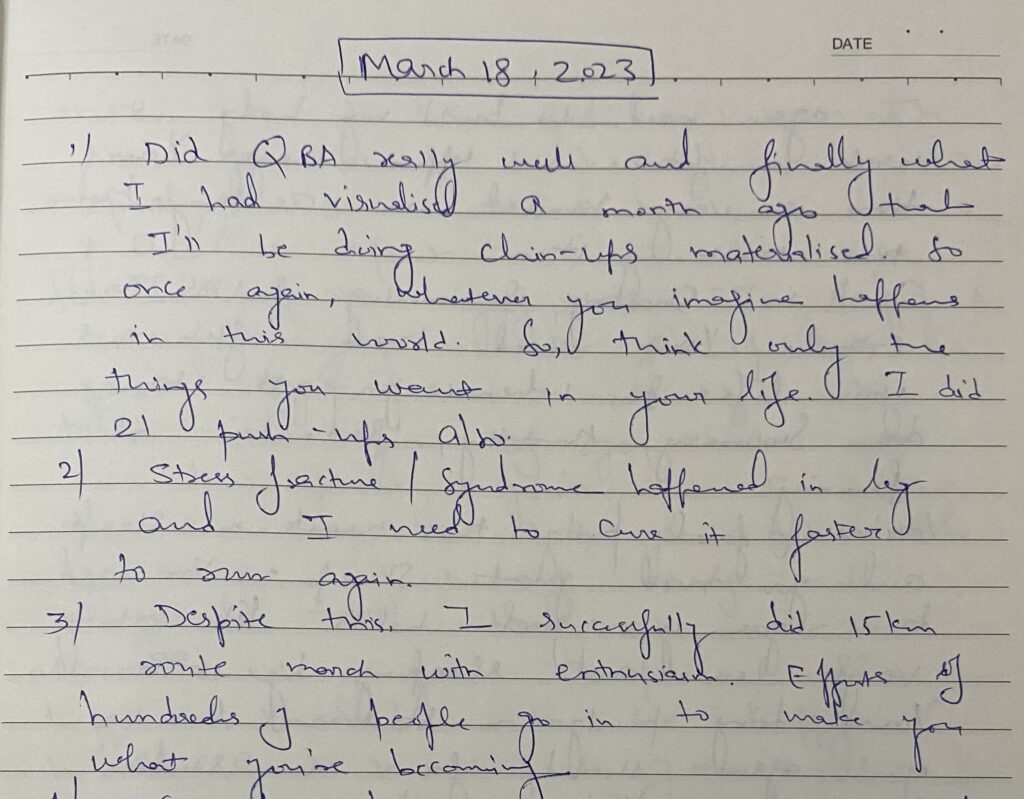 DATE
March 18, 2023
1) Did QBA really well and finally what
I had visualised a month ago that
I'll be doing chin-ups materialised. So
once again, whatever you imagine happens
in this world. So, think only the
things you want in your life. I did
21 push-ups also.
2) Stress fracture / Syndrome happened in leg
and I need to cure it faster
to run again.
3) Despite this, I successfully did 15km
route march with enthusiasm. Efforts of
hundreds of people go in to make you
what you're becoming